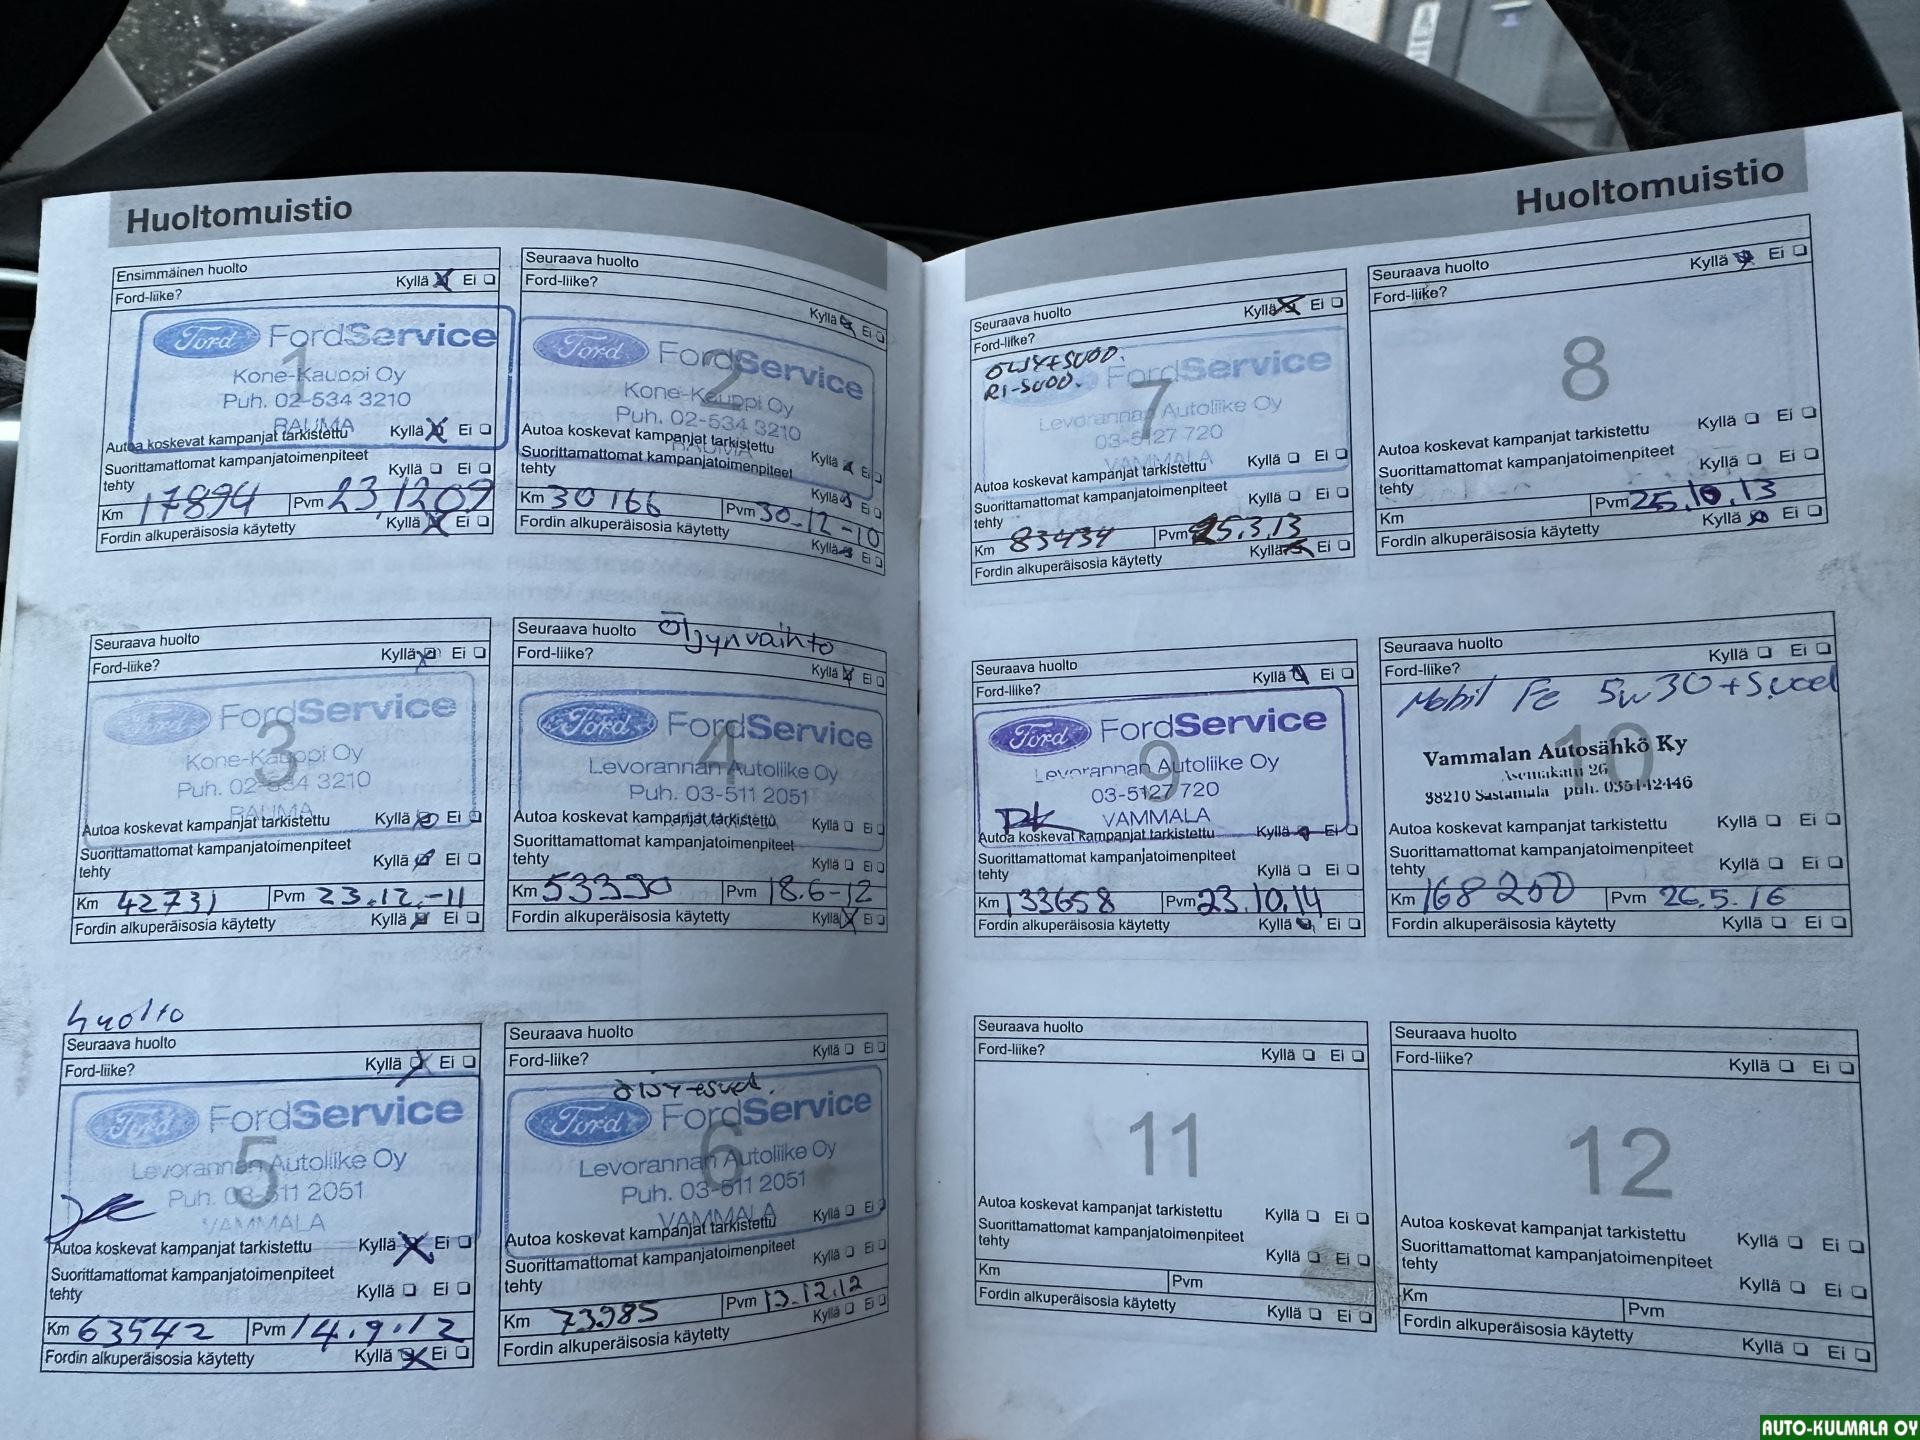 Huoltomuistio
Ensimmäinen huolto
Ford-liike? Kyllä Ei
1
Ford FordService
Kone-Kauppi Oy
Puh. 02-534 3210
RAUMA
Autoa koskevat kampanjat tarkistettu Kyllä Ei
Suorittamattomat kampanjatoimenpiteet
tehty Kyllä Ei
Km 17894 Pvm 23.1209
Fordin alkuperäisosia käytetty Kyllä Ei
Seuraava huolto
Ford-liike? Kyllä Ei
2
Ford FordService
Kone-Kauppi Oy
Puh. 02-534 3210
RAUMA
Autoa koskevat kampanjat tarkistettu Kyllä Ei
Suorittamattomat kampanjatoimenpiteet
tehty Kyllä Ei
Km 30166 Pvm 30-12-10
Fordin alkuperäisosia käytetty Kyllä Ei
Seuraava huolto
Ford-liike? Kyllä Ei
3
Ford FordService
Kone-Kauppi Oy
Puh. 02-534 3210
RAUMA
Autoa koskevat kampanjat tarkistettu Kyllä Ei
Suorittamattomat kampanjatoimenpiteet
tehty Kyllä Ei
Km 42731 Pvm 23.12.-11
Fordin alkuperäisosia käytetty Kyllä Ei
Seuraava huolto Öljynvaihto
Ford-liike? Kyllä Ei
4
Ford FordService
Levorannan Autoliike Oy
Puh. 03-511 2051
Autoa koskevat kampanjat tarkistettu Kyllä Ei
Suorittamattomat kampanjatoimenpiteet
tehty Kyllä Ei
Km 53390 Pvm 18.6-12
Fordin alkuperäisosia käytetty Kyllä Ei
huolto
Seuraava huolto
Ford-liike? Kyllä Ei
5
Ford FordService
Levorannan Autoliike Oy
Puh. 03-511 2051
VAMMALA
Autoa koskevat kampanjat tarkistettu Kyllä Ei
Suorittamattomat kampanjatoimenpiteet
tehty Kyllä Ei
Km 63542 Pvm 14.9.12
Fordin alkuperäisosia käytetty Kyllä Ei
Seuraava huolto
Ford-liike? Kyllä Ei
6
Ford FordService
Levorannan Autoliike Oy
Puh. 03-511 2051
VAMMALA
Autoa koskevat kampanjat tarkistettu Kyllä Ei
Suorittamattomat kampanjatoimenpiteet
tehty Kyllä Ei
Km 73985 Pvm 13.12.12
Fordin alkuperäisosia käytetty Kyllä Ei
Huoltomuistio
Seuraava huolto
Ford-liike? Kyllä Ei
7
RI-SUOD.
FordService
Levorannan Autoliike Oy
03-5127 720
VAMMALA
Autoa koskevat kampanjat tarkistettu Kyllä Ei
Suorittamattomat kampanjatoimenpiteet
tehty Kyllä Ei
Km 83434 Pvm 25.3.13
Fordin alkuperäisosia käytetty Kyllä Ei
Seuraava huolto
Ford-liike? Kyllä Ei
8
Autoa koskevat kampanjat tarkistettu Kyllä Ei
Suorittamattomat kampanjatoimenpiteet
tehty Kyllä Ei
Km Pvm 25.10.13
Fordin alkuperäisosia käytetty Kyllä Ei
Seuraava huolto
Ford-liike? Kyllä Ei
9
Ford FordService
Levorannan Autoliike Oy
03-5127 720
VAMMALA
Autoa koskevat kampanjat tarkistettu Kyllä Ei
Suorittamattomat kampanjatoimenpiteet
tehty Kyllä Ei
Km 133658 Pvm 23.10.14
Fordin alkuperäisosia käytetty Kyllä Ei
Seuraava huolto
Ford-liike? Kyllä Ei
Mobil Fe 5w30 + Suod
10
Vammalan Autosähkö Ky
Asemakatu 26
38210 Sastamala puh. 035142446
Autoa koskevat kampanjat tarkistettu Kyllä Ei
Suorittamattomat kampanjatoimenpiteet
tehty Kyllä Ei
Km 168200 Pvm 26.5.16
Fordin alkuperäisosia käytetty Kyllä Ei
Seuraava huolto
Ford-liike? Kyllä Ei
11
Autoa koskevat kampanjat tarkistettu Kyllä Ei
Suorittamattomat kampanjatoimenpiteet
tehty Kyllä Ei
Km Pvm
Fordin alkuperäisosia käytetty Kyllä Ei
Seuraava huolto
Ford-liike? Kyllä Ei
12
Autoa koskevat kampanjat tarkistettu Kyllä Ei
Suorittamattomat kampanjatoimenpiteet
tehty Kyllä Ei
Km Pvm
Fordin alkuperäisosia käytetty Kyllä Ei
AUTO-KULMALA OY